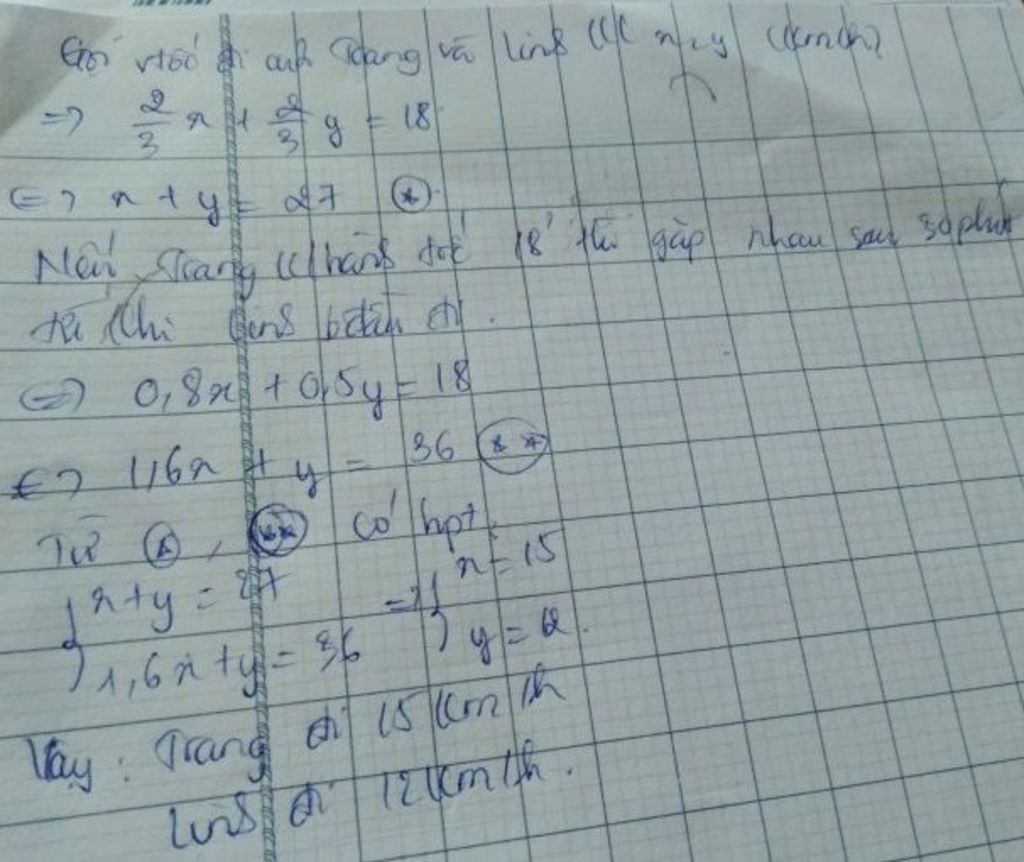 Gọi vtốc đi của Trang và Linh lll x, y (km/h)
=> 2/3 x + 2/3 y = 18
<=> x + y = 27 (*)
Nếu Trang khởi hành trc 18' thì gặp nhau sau 30 phút
từ khi Linh bđầu đi.
<=> 0,8x + 0,5y = 18
<=> 1,6x + y = 36 (**)
Từ (*), (**) có hpt
{ x + y = 27
1,6x + y = 36 => { x = 15
y = 12.
Vậy: Trang đi 15 km/h
Linh đi 12 km/h.